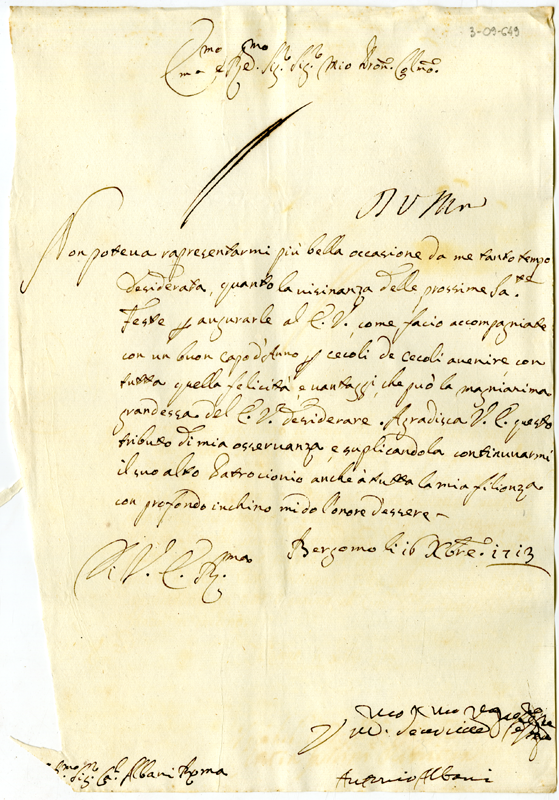 3-09-649
Em.mo e Re.mo Sig.r Sig.r Mio Pron. Col.mo
Non poteva rapresentarmi più bella occasione da me tanto tempo
desiderata, quanto la visinanza delle prossime Sa.te
Feste p augurarle al E. V. come facio accompagniate
con un buon capo d'Anno p cecoli de cecoli avenire, con
tutta quella felicità, e vantaggi, che può la magnianima
grandessa del E. V. desiderare. Agradisca V. E. questo
tributo di mia osservanza, e suplicandola continuuarmi
il suo alto Patrocionio anche à tutta la mia filionza
con profondo inchino mi do l'onore d'essere –
Bergomo li 16 Xbre. 1713
Di V. E. R.ma
Sig. C. Albani Roma
Antonio Albani